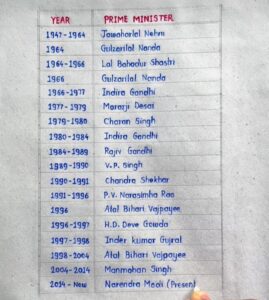 YEAR PRIME MINISTER
1947-1964 Jawaharlal Nehru
1964 Gulzarilal Nanda
1964-1966 Lal Bahadur Shastri
1966 Gulzarilal Nanda
1966-1977 Indira Gandhi
1977-1979 Morarji Desai
1979-1980 Charan Singh
1980-1984 Indira Gandhi
1984-1989 Rajiv Gandhi
1989-1990 V.P. Singh
1990-1991 Chandra Shekhar
1991-1996 P.V. Narasimha Rao
1996 Atal Bihari Vajpayee
1996-1997 H.D. Deve Gowda
1997-1998 Inder kumar Gujral
1998-2004 Atal Bihari Vajpayee
2004-2014 Manmohan Singh
2014-Now Narendra Modi (Present